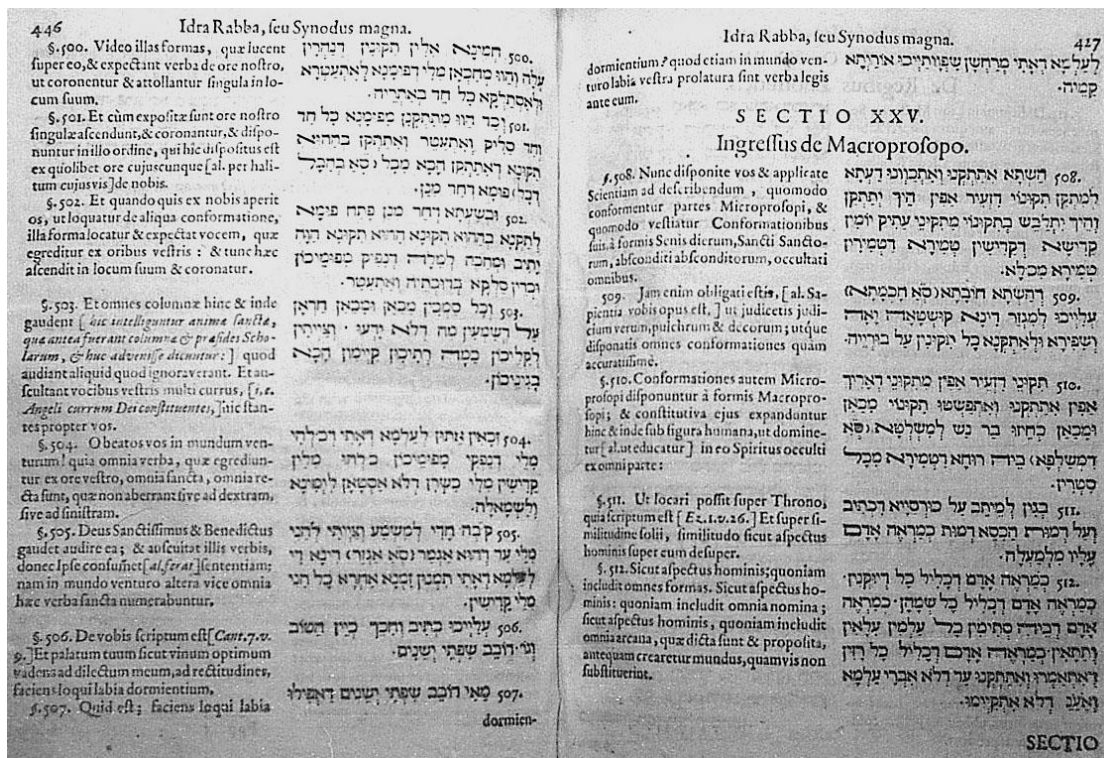 446 Idra Rabba, ſeu Synodus magna.
§.500. Video illas formas, quæ lucent
ſuper eo, & expectant verba de ore noſtro,
ut coronentur & attollantur ſingula in lo-
cum ſuum.
§.501. Et cùm expoſitæ ſunt ore noſtro
ſingulæ aſcendunt, & coronantur, & diſpo-
nuntur in illo ordine, qui hîc diſpoſitus eſt
ex quolibet ore cujuscunque [al. per hali-
tum cujusvis] de nobis.
§.502. Et quando quis ex nobis aperit
os, ut loquatur de aliqua conformatione,
illa forma locatur & expectat vocem, quæ
egreditur ex oribus veſtris: & tunc hæc
aſcendit in locum ſuum & coronatur.
§.503. Et omnes columnæ hinc & inde
gaudent [hic intelliguntur animæ ſanctæ,
quæ antea fuerant columnæ & præſides Scho-
larum, & huc adveniſſe dicuntur:] quod
audiant aliquid quod ignoraverant. Et au-
ſcultant vocibus veſtris multi currus, [i.e.
Angeli currum Dei conſtituentes,] hic ſtan-
tes propter vos.
§.504. O beatos vos in mundum ven-
turum! quia omnia verba, quæ egrediun-
tur ex ore veſtro, omnia ſancta, omnia re-
cta ſunt, quæ non aberrant ſive ad dextram,
ſive ad ſiniſtram.
§.505. Deus Sanctiſſimus & Benedictus
gaudet audire ea; & auſcultat illis verbis,
donec Ipſe conſumet [al. ferat] ſententiam;
nam in mundo venturo altera vice omnia
hæc verba ſancta numerabuntur.
§.506. De vobis ſcriptum eſt [Cant. 7. v.
9.] Et palatum tuum ſicut vinum optimum
vadens ad dilectum meum, ad rectitudines,
faciens loqui labia dormientium.
§.507. Quid eſt; faciens loqui labia
500. חמינא אלין תקונין דנהרין
עלה והוו מחכאן מלי דפומנא לאתעטרא
ולאסתלקא כל חד באתריה.
501. וכד הוו מתתקנן מפומנא כל חד
וחד סליק ואתעטר ואתתקן בההיא
תקונא דאתתקן הכא מכל (סא בהבל
דכל) פומא דחד מנן.
502. ובשעתא דחד מנן פתח פומא
לתקנא בההוא תקונא ההוא תקונא הוה
יתיב ומחכה למלה דנפיק מפומיכון
וכדין סלקא בדוכתיה ואתעטר.
503. וכל סמכין מכאן ומכאן חדאן
על דשמעין מה דלא ידעו וצייתין
לקליכון כמה רתיכון קיימון הכא
בגיניכון.
504. זכאין אתון לעלמא דאתי דכולהי
מלי דנפקי מפומיכון כלהו מלין
קדישין מלי כשרן דלא אסטאן לימינא
ולשמאלא.
505. קבה חדי למשמע וצייתי להני
מלי עד דהוא אגמר (סא אגזר) דינא די
לעלמא דאתי תמנון זמנא אחרא כל הני
מלי קדישין.
506. עלייכו כתיב וחכך כיין הטוב
וגו׳ דובב שפתי ישנים.
507. מאי דובב שפתי ישנים דאפילו
dormien-
Idra Rabba, ſeu Synodus magna. 427
dormientium? quod etiam in mundo ven-
turo labia veſtra prolatura ſint verba legis
ante eum.
לעלמא דאתי מרחשן שפוותייכו אורייתא
קמיה.
SECTIO XXV.
Ingreſſus de Macroproſopo.
§.508. Nunc diſponite vos & applicate
Scientiam ad deſcribendum, quomodo
conformentur partes Microproſopi, &
quomodo veſtiatur Conformationibus
ſuis, à formis Senis dierum, Sancti Sancto-
rum, abſconditi abſconditorum, occultati
omnibus.
509. Jam enim obligati eſtis, [al. Sa-
pientia vobis opus eſt,] ut judicetis judi-
cium verum, pulchrum & decorum; utque
diſponatis omnes conformationes quàm
accuratiſſimè.
§.510. Conformationes autem Micro-
proſopi diſponuntur à formis Macropro-
ſopi; & conſtitutiva ejus expanduntur
hinc & inde ſub figura humana, ut domine-
tur [al. ut educatur] in eo Spiritus occulti
ex omni parte:
§.511. Ut locari poſſit ſuper Throno,
quia ſcriptum eſt [Ez. 1. v. 26.] Et ſuper ſi-
militudine ſolii, ſimilitudo ſicut aſpectus
hominis ſuper eum deſuper.
§.512. Sicut aſpectus hominis; quoniam
includit omnes formas. Sicut aſpectus ho-
minis: quoniam includit omnia nomina;
ſicut aſpectus hominis, quoniam includit
omnia arcana, quæ dicta ſunt & propoſita,
antequam crearetur mundus, quamvis non
ſubſtiterint.
508. השתא אתתקנו ואתכוונו דעתא
למתקן תקונוי דזעיר אפין היך יתתקן
והיך יתלבש בתקונוי מתקוני עתיק יומין
קדישא דקדישין טמירא דטמירין
טמירא מכלא.
509. דהשתא חובתא (סא חכמתא)
עלייכו למגזר דינא קושטאה ויאה
ושפירא ולאתקנא כל תקונין על בורייה.
510. תקוני דזעיר אפין מתקוני דאריך
אפין אתתקנו ואתפשטו תקונוי מכאן
ומכאן כחיזו בר נש למשלטא (סא
דמשלפא) ביה רוחא דטמירא מכל
סטרין.
511. בגין למיתב על כורסייא דכתיב
ועל דמות הכסא דמות כמראה אדם
עליו מלמעלה.
512. כמראה אדם דכליל כל דיוקנין.
כמראה אדם דכליל כל שמהן. כמראה
אדם דביה סתימין כל עלמין עלאין
ותתאין. כמראה אדם דכליל כל רזין
דאתאמרו ואתתקנו עד דלא אברי עלמא
ואעג דלא אתקיימו.
SECTIO